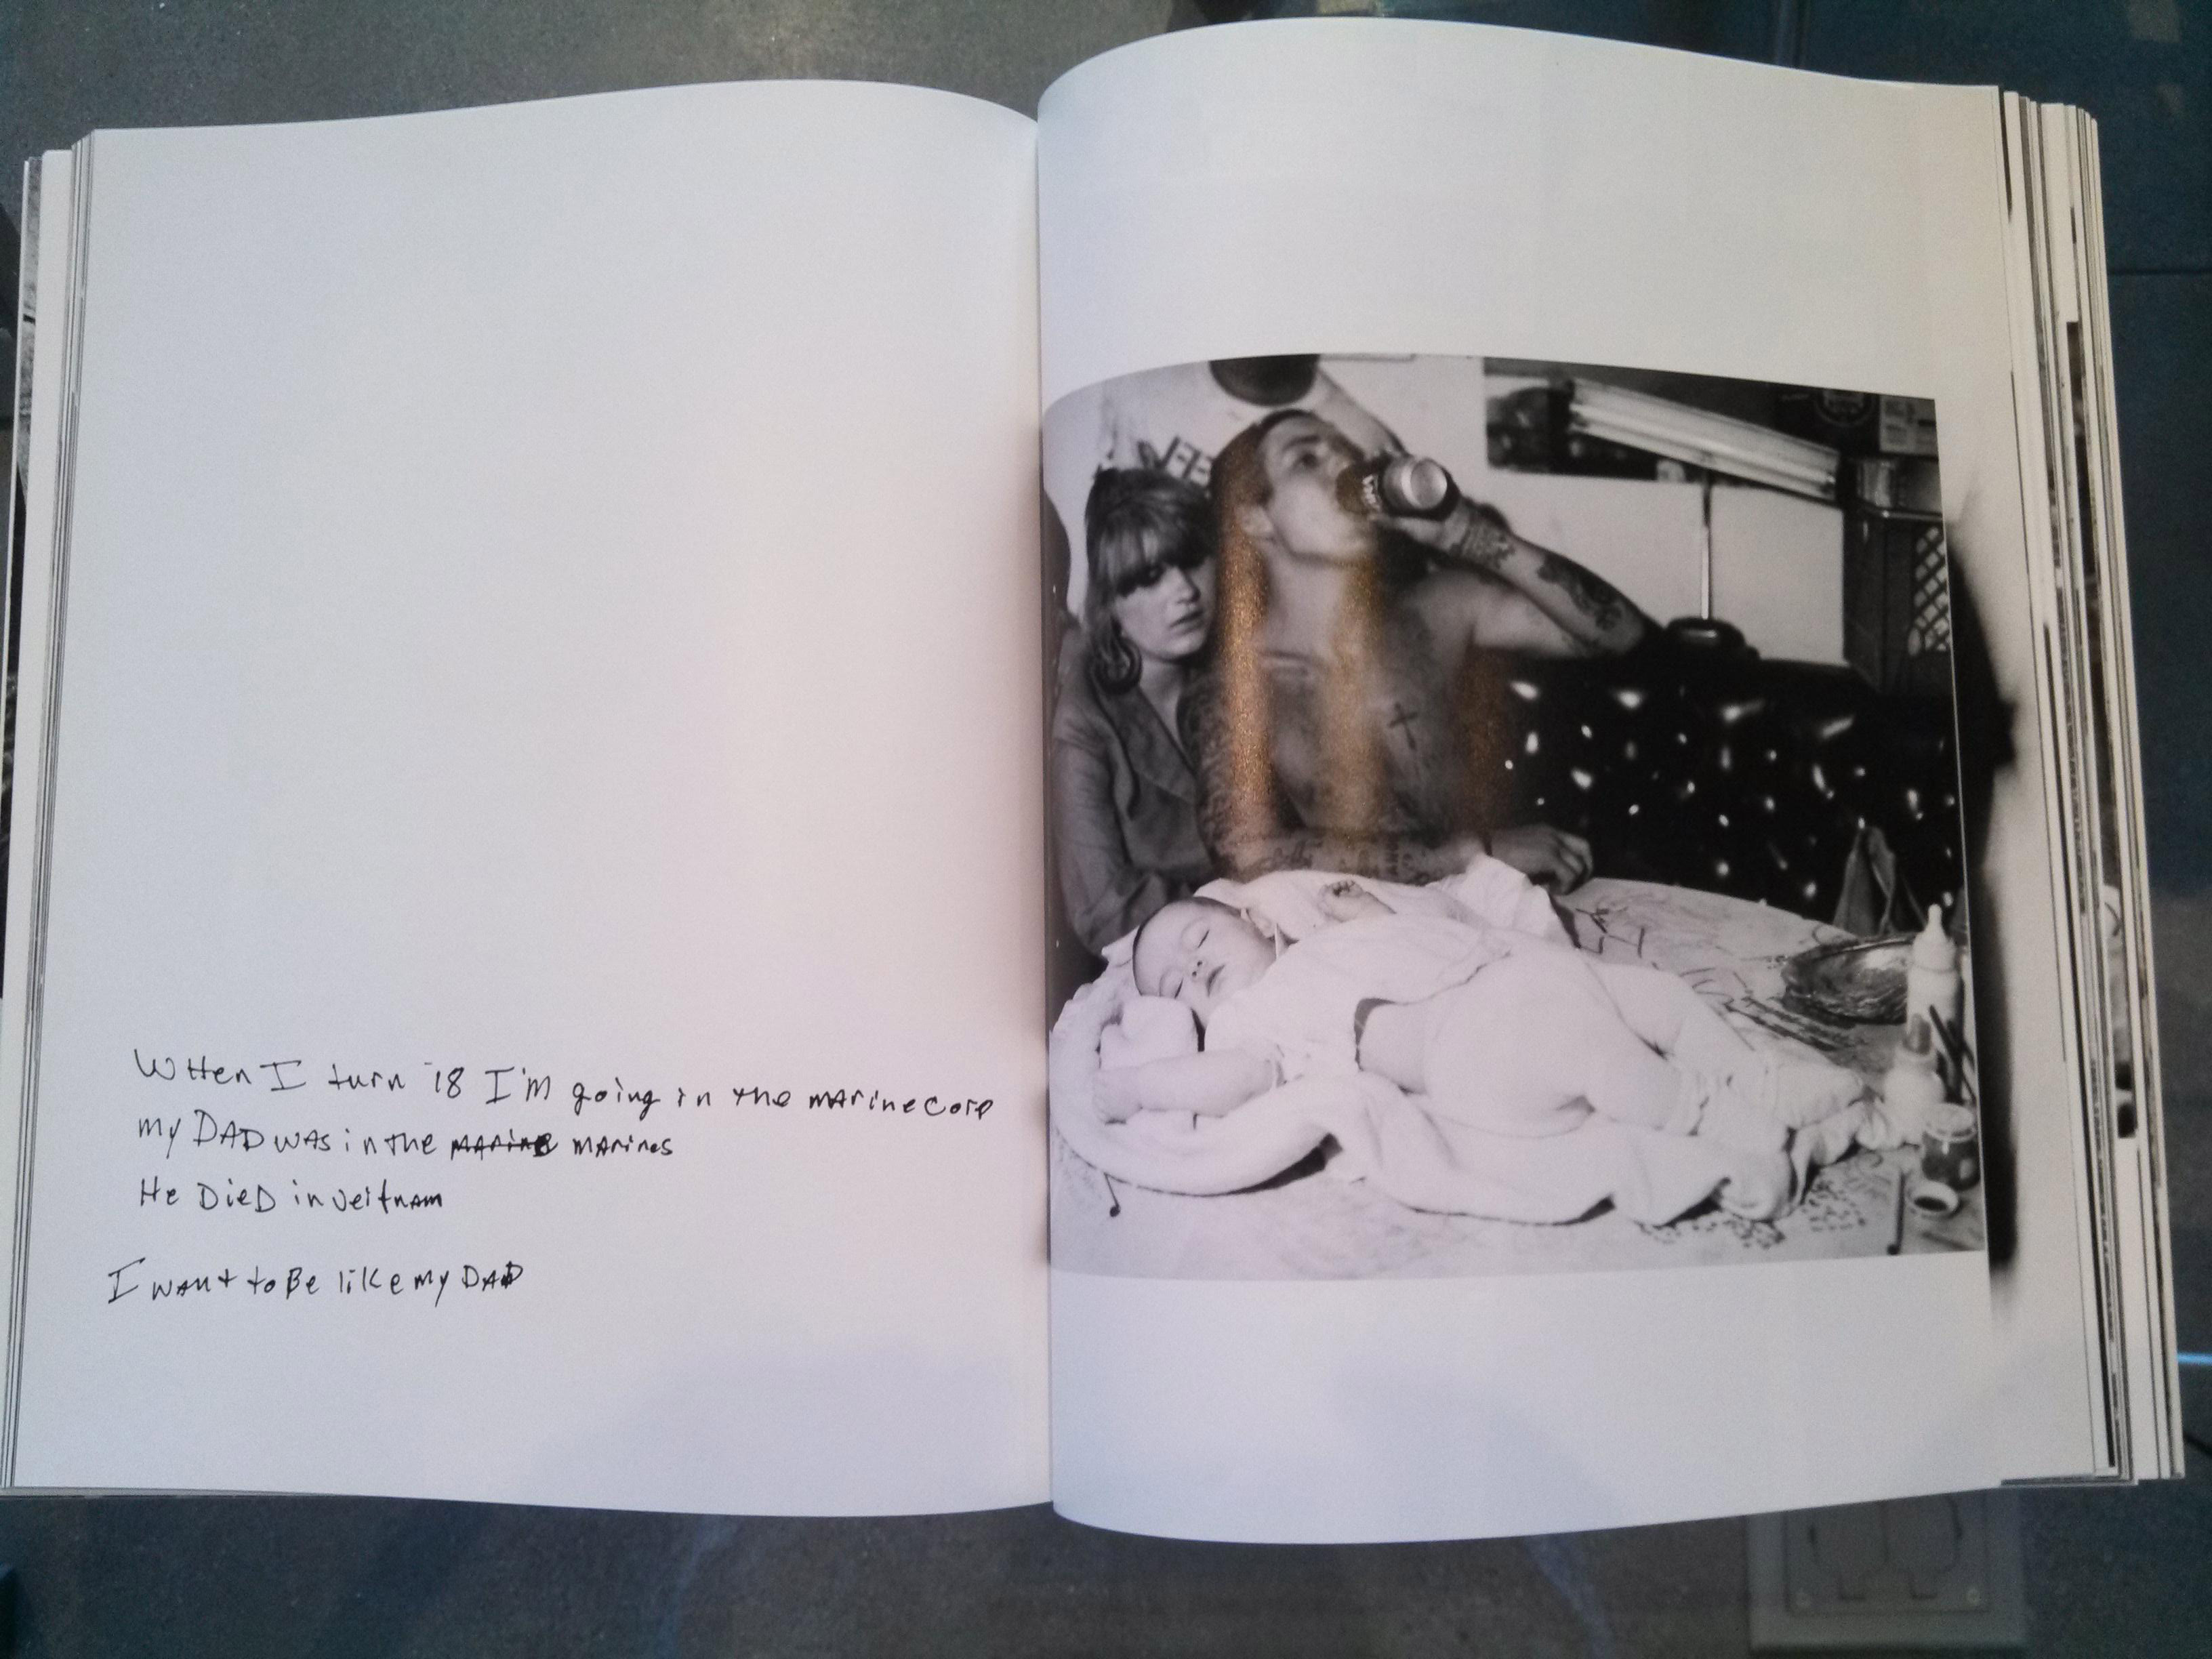 WHen I turn 18 I'm going in the mArinecorp
my DAD wAs in the mArine mArines
He DieD in veitnam
I wAnt to Be like my DAD